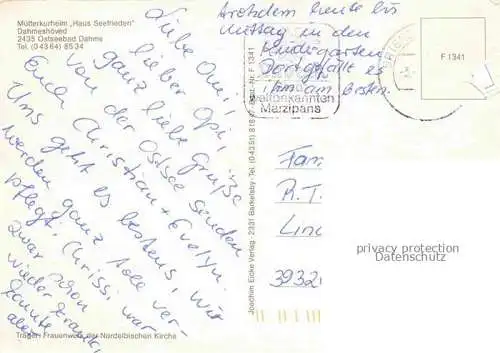 Mütterkurheim „Haus Seefrieden"
Dahmeshöved
2435 Ostseebad Dahme
Tel. (04364) 8534
Liebe Omi,
lieber Opi,
ganz liebe Grüße
von der Ostsee senden
Euch Christian + Evelyn.
Uns geht es bestens, wir
werden ganz toll ver-
pflegt. Chrissi war
zwar schon
wieder krank,
konnte
aber
trotzdem heute bis
Mittag in den
Kindergarten
Dort gefällt es
ihm am besten.
weltbekannten
Marzipans
F 1341
Joachim Eicke Verlag · 2331 Barkelsby · Tel. (04351) 81
F 1341
Fam
A. T.
Linc
3932
privacy protection
Datenschutz
Träger: Frauenwerk der Nordelbischen Kirche